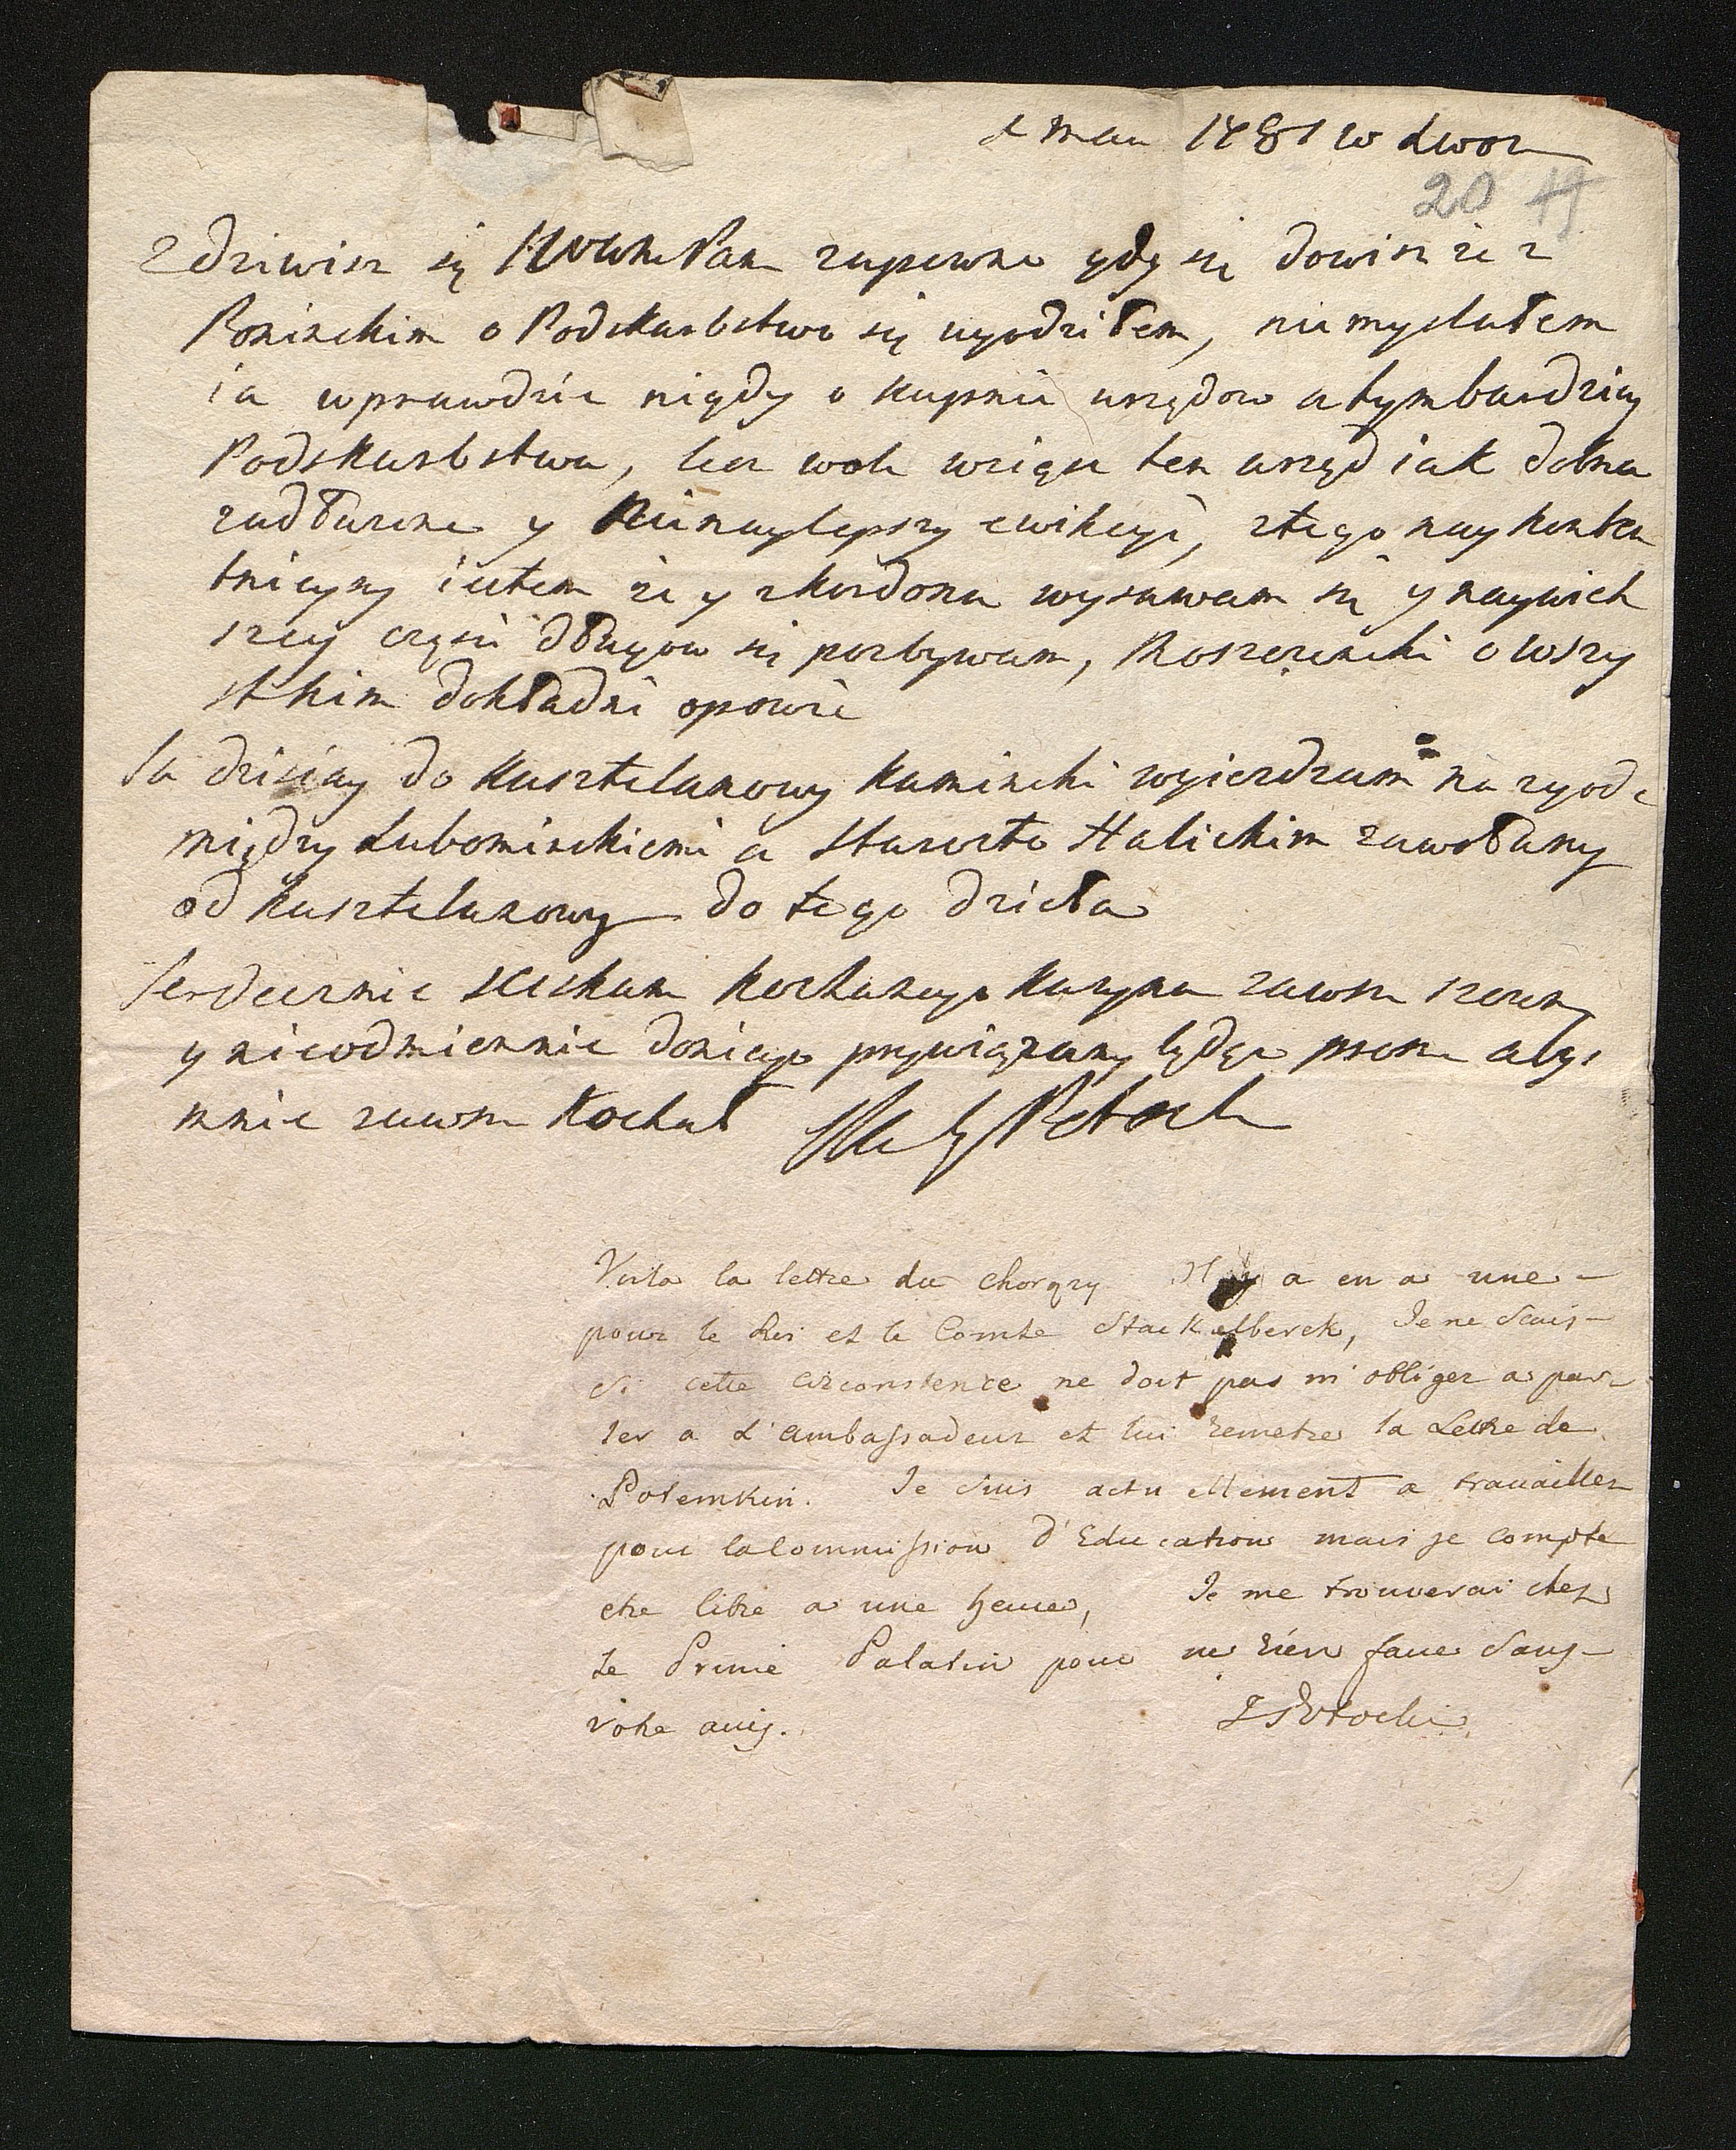 maii 1781 w
20 19
Zdziwisz się WWMPan zapewne gdy się dowisz że z
Poninskim o Podskarbstwo się ugodziłem, niemyslałem
ia wprawdzie nigdy o kupnie urzędow a tymbardziey
Podskarbstwa, lecz wole wziąść ten urząd iak dobra
zadłużone y nienaylepszy ewikcyi, ztego naykonten
tnieyszy iestem że y zkordonu wysuwam się y naywięk
szey części długow się pozbywam, Roszczeński o wszy
stkim dokładnie opowie
Ja dzisiay do Kasztelanowy Kaminski wyiezdzam na zgode
między Lubomirskiemi a Starosto Halickim zawołany
od Kasztelanowy do tego dzieła
Serdecznie sciskam kochanego Kuzyna zawsze szczery
y nieodmiennie doniego przywiązany będąc prosze abyś
mnie zawsze kochał Potocki
Voila la lettre du chorąży Il y a en a une
pour le Roi et le Comte Stackelberck, Je ne Scais
Si cette circonstence ne doit pas m'obliger a par
ler a L'ambassadeur et lui remetre la Lettre de
Potemkin. Je Suis actuellement a travailler
pour la Commission d'Education mais je compte
etre libre a une heure, Je me trouverai chez
Le Prince Palatin pour ne rien faire Sans
votre avis. Potocki